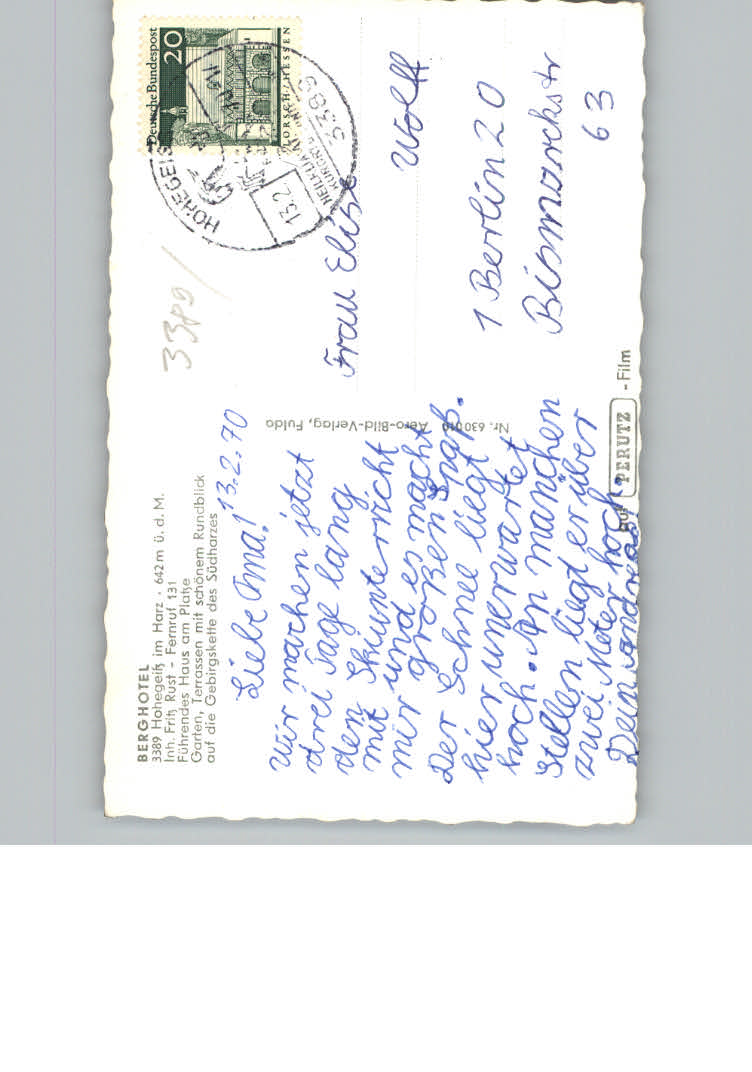 BERGHOTEL
3389 Hohegeiß im Harz · 642 m ü. d. M.
Inh. Fritz Rust - Fernruf 131
Führendes Haus am Platze
Garten, Terrassen mit schönem Rundblick
auf die Gebirgskette des Südharzes
13.2.70
Liebe Oma!
Wir machen jetzt
drei Tage lang
den Skiunterricht
mit und es macht
mir großen Spaß.
Der Schnee liegt
hier unerwartet
hoch. An manchen
Stellen liegt er über
zwei Meter hoch.
Dein Andreas
Nr. 630 Aero-Bild-Verlag, Fulda
auf PERUTZ - Film
3389
Deutsche Bundespost
20
LORSCH/HESSEN
HOHEGEISS
13.2.
HEILKLIMA
3389
Frau Elise
Wolff
1 Berlin 20
Bismarckstr
63